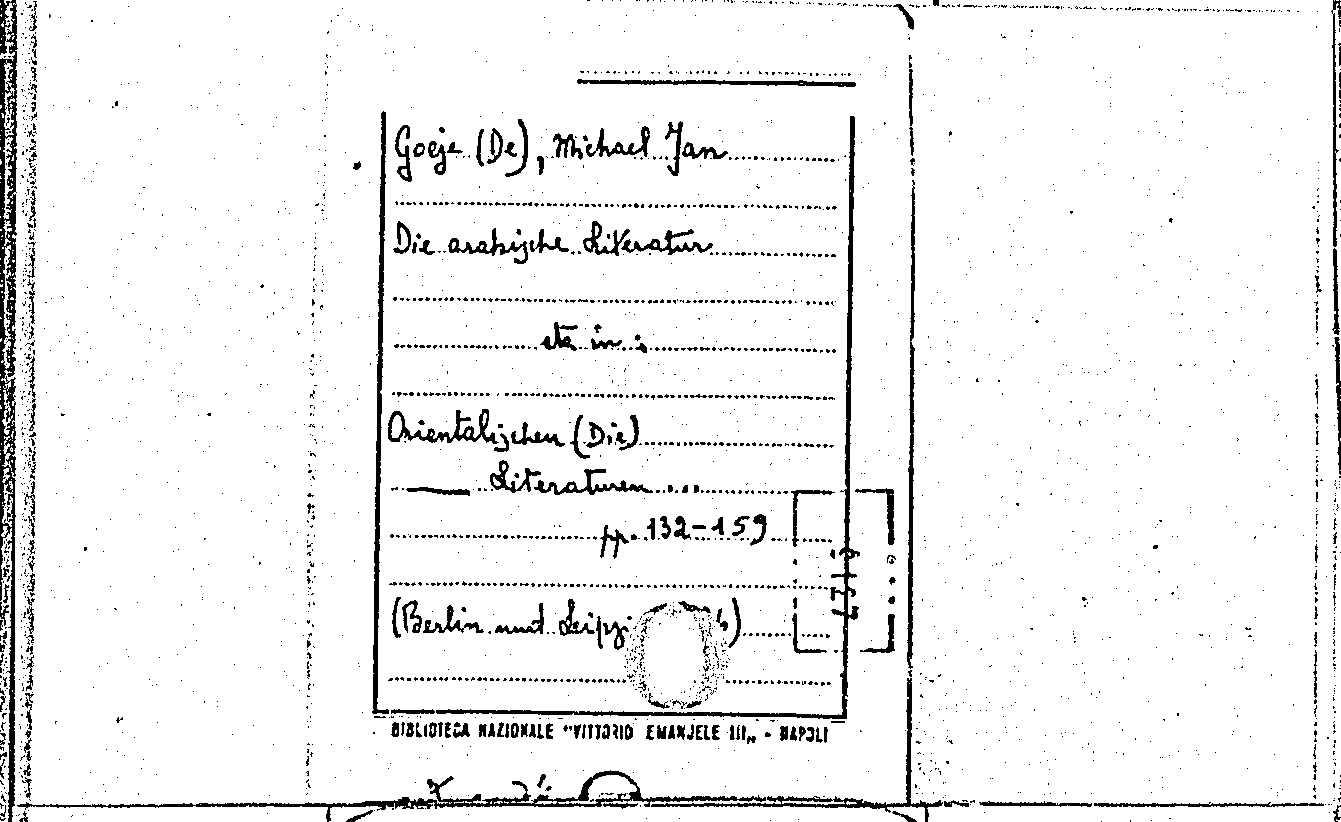 Goeje (De), Michael Jan
Die arabische Literatur
sta in :
Orientalischen (Die)
Literaturen ...
pp. 132-159
(Berlin und
BIBLIOTECA NAZIONALE "VITTORIO EMANUELE III„ - NAPOLI